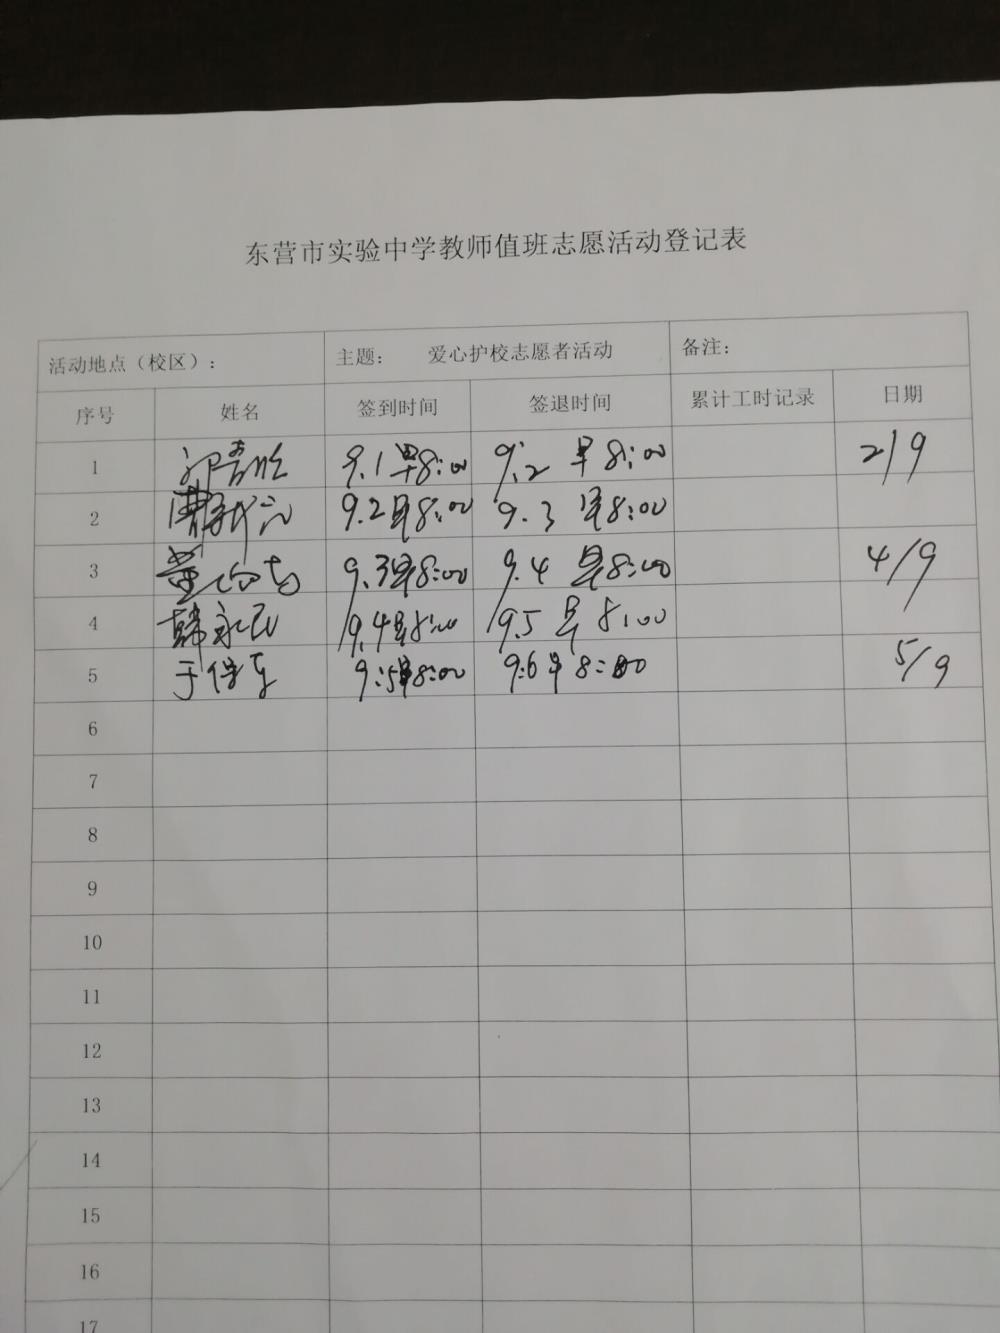 东营市实验中学教师值班志愿活动登记表
活动地点（校区）： 主题： 爱心护校志愿者活动 备注：
序号 姓名 签到时间 签退时间 累计工时记录 日期
1 9.1早8:00 9.2 早8:00 2/9
2 9.2早8:00 9.3 早8:00
3 9.3早8:00 9.4 早8:00 4/9
4 韩永民 9.4早8:00 9.5早8:00
5 于保东 9:5早8:00 9:6早8:00 5/9
6
7
8
9
10
11
12
13
14
15
16
17